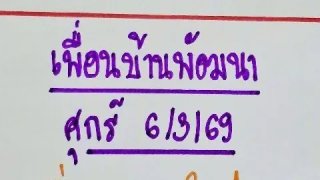 เพื่อนบ้านพ้อมนา
ศุกร์ 6/3/69